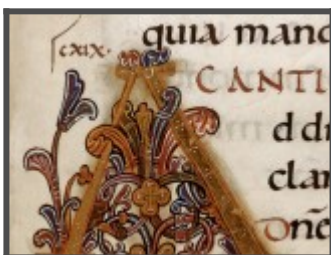 cxix·
quia mand
CANTI
A
d dn
clam
Dnē